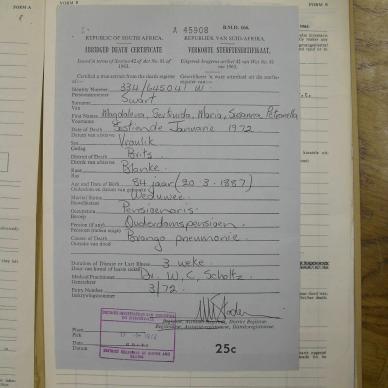 FORM A
FORM B
A 45908
B.M.D. 166.
REPUBLIC OF SOUTH AFRICA.
REPUBLIEK VAN SUID-AFRIKA.
ABRIDGED DEATH CERTIFICATE
VERKORTE STERFTESERTIFIKAAT.
Issued in terms of Section 42 of Act No. 81 of 1963.
Uitgereik kragtens artikel 42 van Wet No. 81 van 1963.
Certified a true extract from the death register
Gesertifiseer 'n ware uittreksel uit die sterfte-
Identity Number 334/645041 W
Persoonsnommer
Surname Swart
Van
First Names Magdalena, Gertruida, Maria, Susanna Petronella
Voorname
Date of Death Sestiende Januarie 1972
Datum van afsterwe
Sex Vroulik
Geslag
District of Death Brits
Distrik van afsterwe
Race Blanke
Ras
Age and Date of Birth 84 jaar (20-3-1887)
Ouderdom en datum van geboorte
Marital Status Weduwee
Huwelikstaat
Occupation Pensioenaris
Beroep
Pension (if any) Ouderdomspensioen
Pensioen (indien enige)
Causes of Death Brongo pneumonie
Oorsake van dood
Duration of Disease or Last Illness 3 weke
Duur van kwaal of laaste siekte
Medical Practitioner Dr. W. C. Scholtz
Geneesheer
Entry Number 3/72
Inskrywingsnommer
Registrar, Assistant Registrar, District Registrar.
Registrateur, Assistentregistrateur, Distriksregistrateur.
Place
Plek
Date
Datum
25c